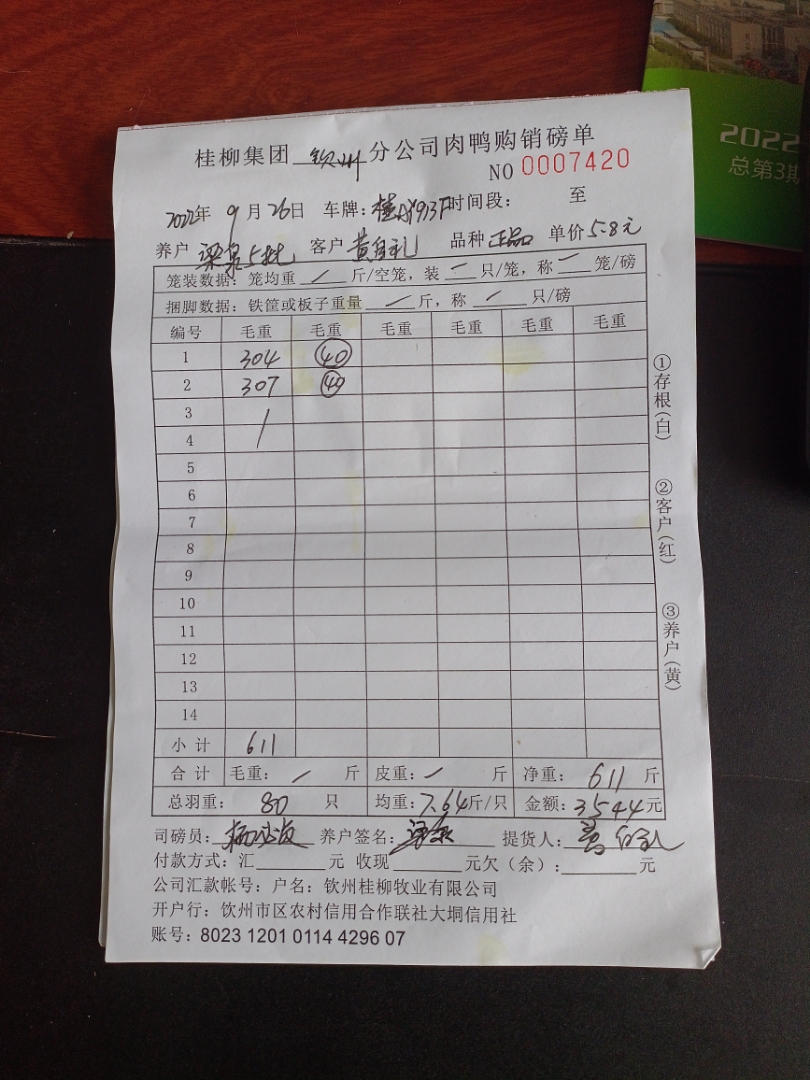 2022
总第3期
桂柳集团 钦州 分公司肉鸭购销磅单
NO 0007420
2022年 9月26日 车牌: 时间段: 至
养户 梁泉5批 客户 黄自礼 品种 正品 单价 5.8元
笼装数据: 笼均重 / 斤/空笼, 装 一 只/笼, 称 一 笼/磅
捆脚数据: 铁筐或板子重量 一 斤, 称 / 只/磅
编号 毛重 毛重 毛重 毛重 毛重 毛重
1 304 ㊵
2 307 ㊵
3 /
4
5
6
7
8
9
10
11
12
13
14
小计 611
合计 毛重: / 斤 皮重: / 斤 净重: 611 斤
总羽重: 80 只 均重: 7.64斤/只 金额: 3544元
司磅员: 养户签名: 梁泉 提货人: 黄自礼
付款方式: 汇 元 收现 元欠(余): 元
公司汇款帐号: 户名: 钦州桂柳牧业有限公司
开户行: 钦州市区农村信用合作联社大垌信用社
账号: 8023 1201 0114 4296 07
①存根(白)
②客户(红)
③养户(黄)